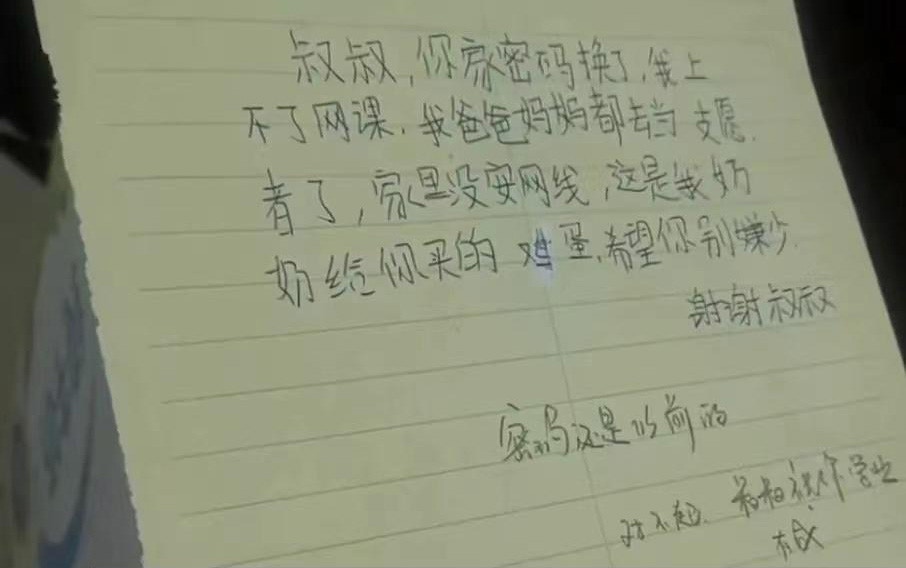 叔叔,你家密码换了,我上
不了网课,我爸爸妈妈都去当 支愿
者了,家里没安网线,这是我奶
奶给你买的 鸡蛋,希望你别嫌少.
谢谢叔叔
密码还是以前的
对不起. 叔叔祝你学业
有成